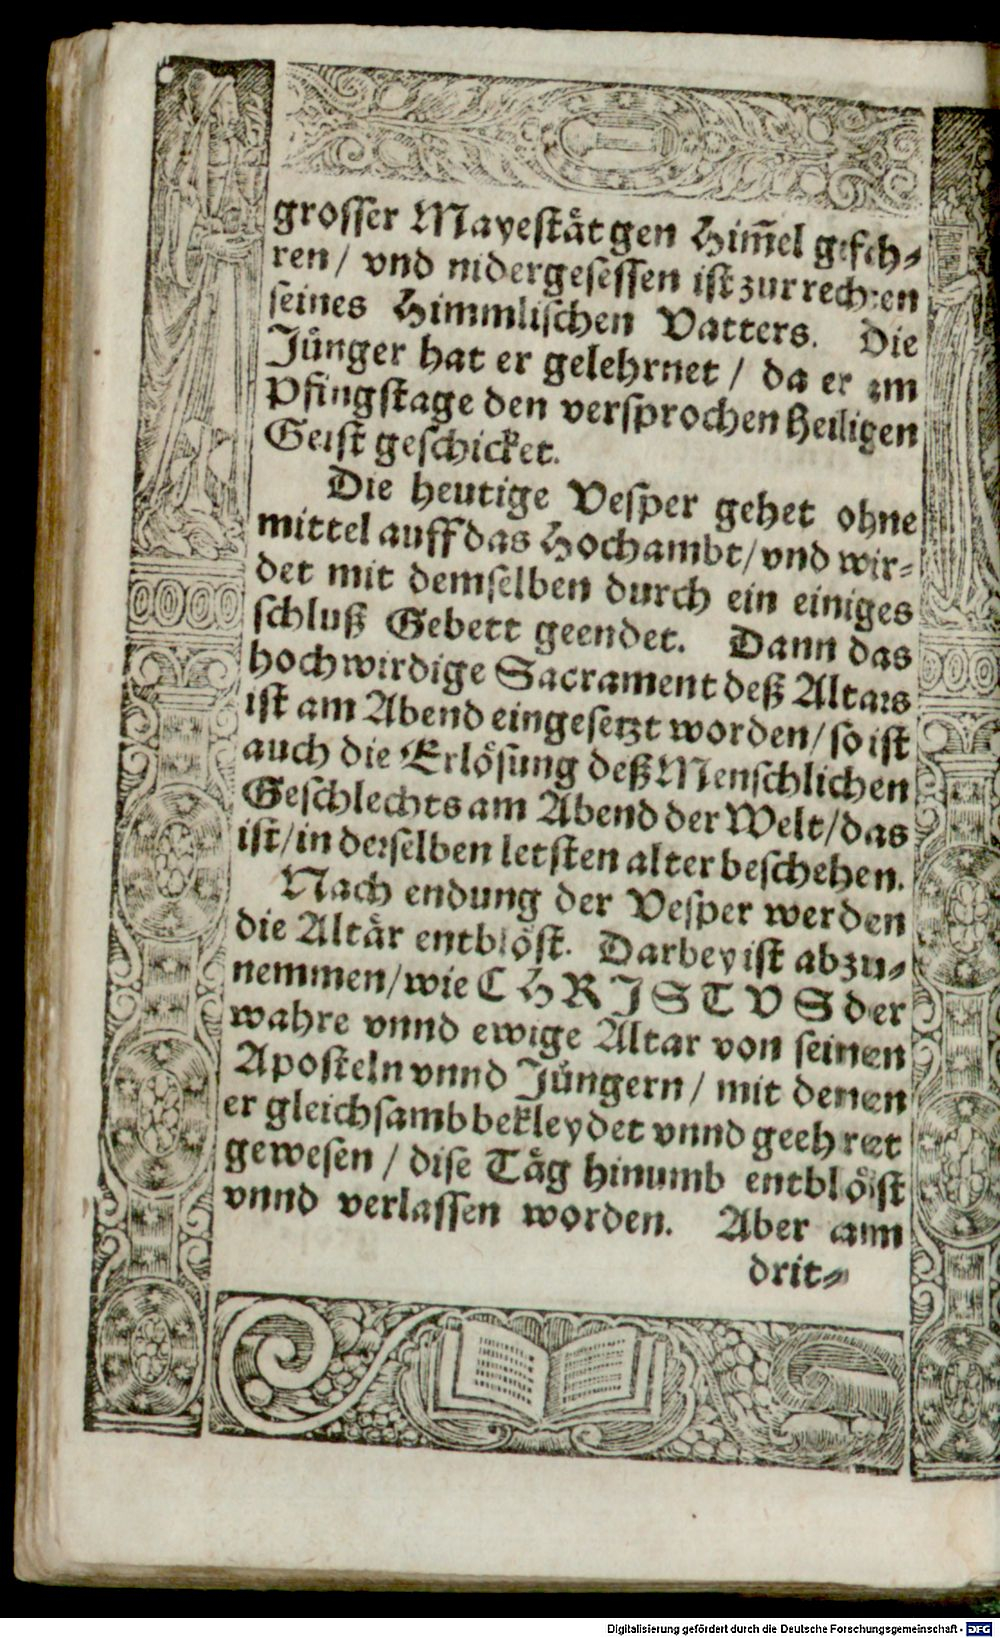 grosser Mayestät gen Him̃el gefeh⸗
ren / vnd nidergesessen ist zur rechten
seines Himmlischen Vatters. Die
Jünger hat er gelehrnet / da er am
Pfingstage den versprochen Heiligen
Geist geschicket.
Die heutige Vesper gehet ohne
mittel auff das Hochambt / vnd wir⸗
det mit demselben durch ein einiges
schluß Gebett geendet. Dann das
hochwirdige Sacrament deß Altars
ist am Abend eingesetzt worden / so ist
auch die Erlösung deß Menschlichen
Geschlechts am Abend der Welt / das
ist / in derselben letsten alter beschehen.
Nach endung der Vesper werden
die Altär entblöst. Darbey ist abzu⸗
nemmen / wie CHRJSTVS der
wahre vnnd ewige Altar von seinen
Aposteln vnnd Jüngern / mit denen
er gleichsamb bekleydet vnnd geehret
gewesen / dise Täg hinumb entblöst
vnnd verlassen worden. Aber am
drit⸗
Digitalisierung gefördert durch die Deutsche Forschungsgemeinschaft - DFG